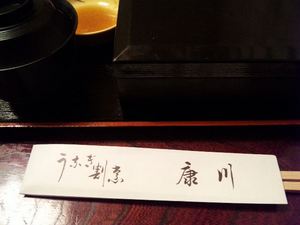 うなぎ割烹 康川